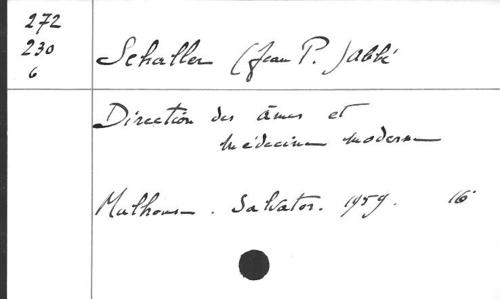 272
230
6
Schaller (Jean P.) abbé
Direction des âmes et
médecine moderne
Mulhouse. Salvator. 1959. 16°